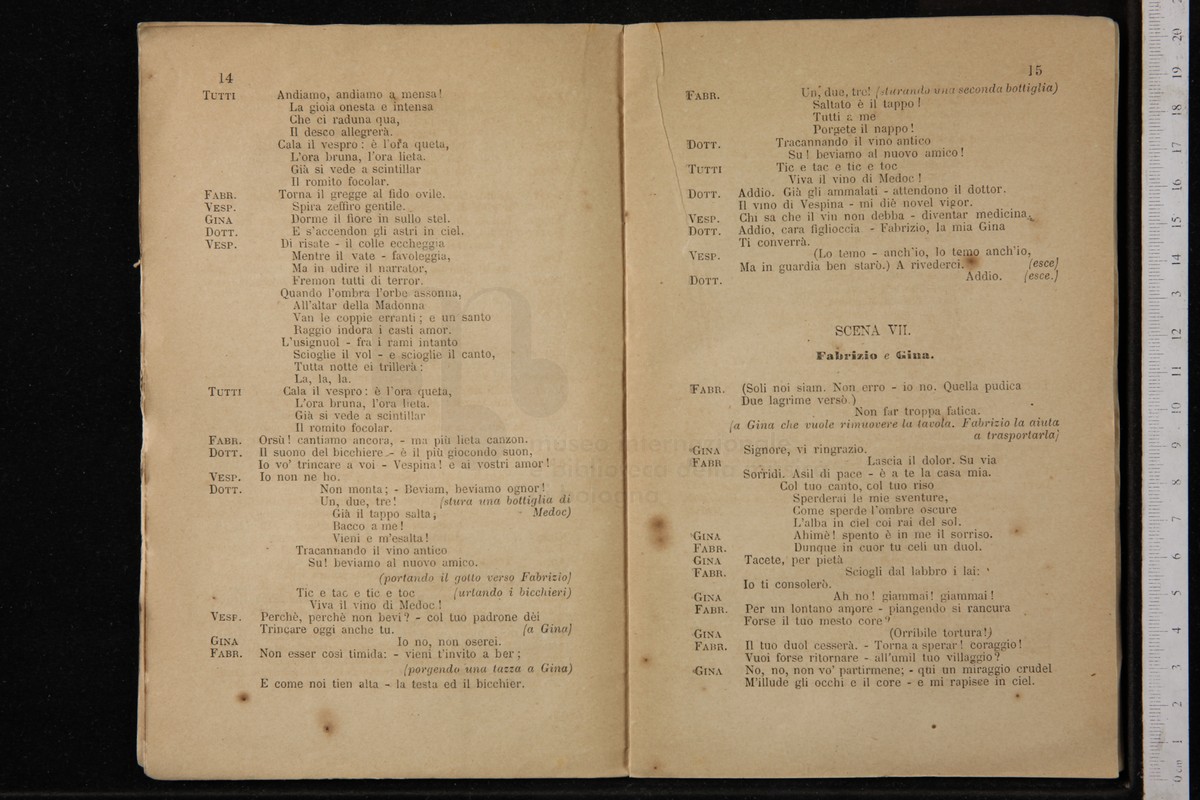 14
TUTTI Andiamo, andiamo a mensa!
La gioia onesta e intensa
Che ci raduna qua,
Il desco allegrerà.
Cala il vespro: è l'ora queta,
L'ora bruna, l'ora lieta.
Già si vede a scintillar
Il romito focolar.
FABR. Torna il gregge al fido ovile.
VESP. Spira zeffiro gentile.
GINA Dorme il fiore in sullo stel.
DOTT. E s'accendon gli astri in ciel.
VESP. Di risate - il colle eccheggia
Mentre il vate - favoleggia,
Ma in udire il narrator,
Fremon tutti di terror.
Quando l'ombra l'orbe assonna,
All'altar della Madonna
Van le coppie erranti; e un santo
Raggio indora i casti amor.
L'usignuol - fra i rami intanto
Scioglie il vol - e scioglie il canto,
Tutta notte ei trillerà:
La, la, la.
TUTTI Cala il vespro: è l'ora queta,
L'ora bruna, l'ora lieta.
Già si vede a scintillar
Il romito focolar.
FABR. Orsù! cantiamo ancora, - ma più lieta canzon.
DOTT. Il suono del bicchiere - è il più giocondo suon,
Io vo' trincare a voi - Vespina! e ai vostri amor!
VESP. Io non ne ho.
DOTT. Non monta; - Beviam, beviamo ognor!
Un, due, tre! (stura una bottiglia di
Già il tappo salta; Medoc)
Bacco a me!
Vieni e m'esalta!
Tracannando il vino antico
Su! beviamo al nuovo amico.
(portando il gotto verso Fabrizio)
Tic e tac e tic e toc (urtando i bicchieri)
Viva il vino di Medoc!
VESP. Perchè, perchè non bevi? - col tuo padrone dèi
Trincare oggi anche tu. (a Gina)
GINA Io no, non oserei.
FABR. Non esser così timida: - vieni t'invito a ber;
(porgendo una tazza a Gina)
E come noi tien alta - la testa ed il bicchier.
15
FABR. Un, due, tre! (sturando una seconda bottiglia)
Saltato è il tappo!
Tutti a me
Porgete il nappo!
DOTT. Tracannando il vino antico
Su! beviamo al nuovo amico!
TUTTI Tic e tac e tic e toc
Viva il vino di Medoc!
DOTT. Addio. Già gli ammalati - attendono il dottor.
Il vino di Vespina - mi diè novel vigor.
VESP. Chi sa che il vin non debba - diventar medicina.
DOTT. Addio, cara figlioccia - Fabrizio, la mia Gina
Ti converrà.
VESP. (Lo temo - anch'io, lo temo anch'io,
Ma in guardia ben starò.) A rivederci. (esce)
DOTT. Addio. (esce.)
SCENA VII.
Fabrizio e Gina.
FABR. (Soli noi siam. Non erro - io no. Quella pudica
Due lagrime versò.)
Non far troppa fatica.
(a Gina che vuole rimuovere la tavola. Fabrizio la aiuta
a trasportarla)
GINA Signore, vi ringrazio.
FABR Lascia il dolor. Su via
Sorridi. Asil di pace - è a te la casa mia.
Col tuo canto, col tuo riso
Sperderai le mie sventure,
Come sperde l'ombre oscure
L'alba in ciel coi rai del sol.
GINA Ahimè! spento è in me il sorriso.
FABR. Dunque in cuor tu celi un duol.
GINA Tacete, per pietà
FABR. Sciogli dal labbro i lai:
Io ti consolerò.
GINA Ah no! giammai! giammai!
FABR. Per un lontano amore - piangendo si rancura
Forse il tuo mesto core?
GINA (Orribile tortura!)
FABR. Il tuo duol cesserà. - Torna a sperar! coraggio!
Vuoi forse ritornare - all'umil tuo villaggio?
GINA No, no, non vo' partirmene; - qui un miraggio crudel
M'illude gli occhi e il core - e mi rapisce in ciel.